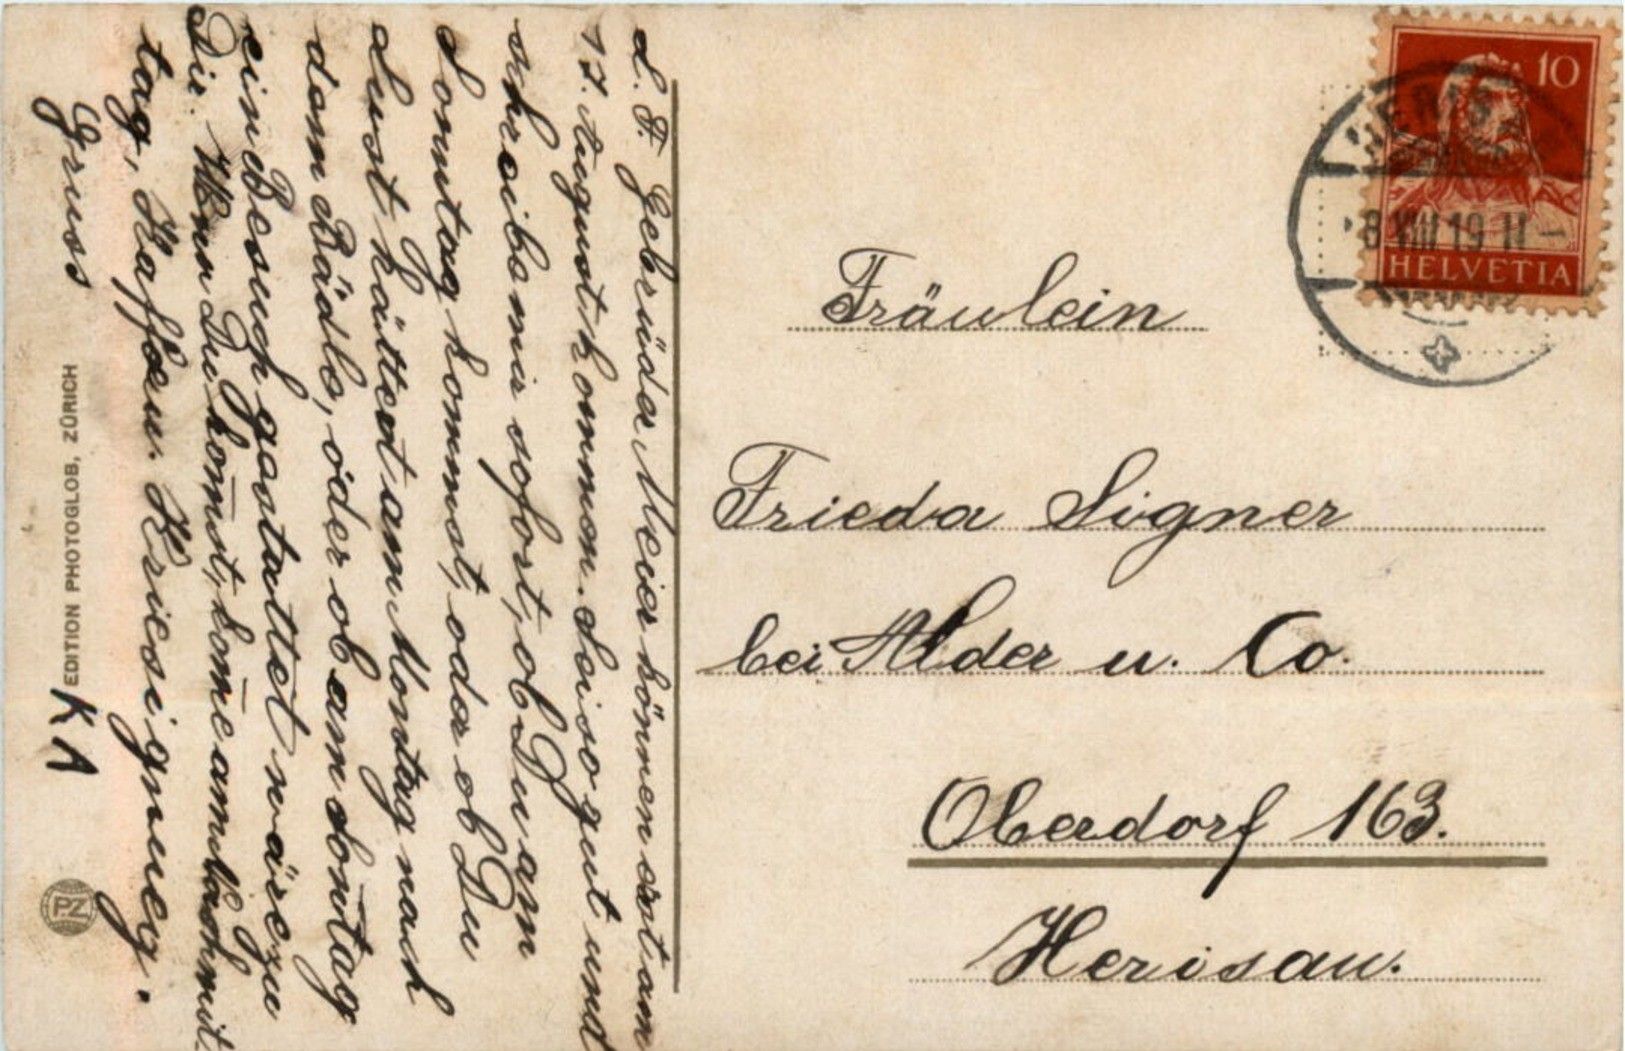 L. F. Gebrüder Meier können erst am
17. August kommen. Sei so gut und
schreibe mir sofort, ob Du am
Sonntag kommst, oder ob Du
Lust hättest am Montag nach
dem Bädle, oder ob am Son̄tag
ein Besuch gestattet wäre zu
Dir. Wenn Du kom̄st, kom̄e am Nachmit-
tag, Kaffeeu. Kriesi gnueg.
Gruss
EDITION PHOTOGLOB, ZÜRICH
KA
PZ
10
HELVETIA
HERISAU
8. VIII 19 11 -
Fräulein
Frieda Signer
bei Alder u. Co.
Oberdorf 163.
Herisau.